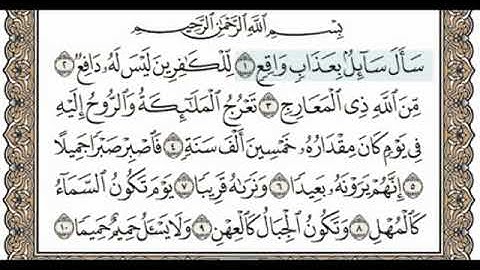 بِسْمِ اللَّهِ الرَّحْمَٰنِ الرَّحِيمِ
سَأَلَ سَآئِلٌۢ بِعَذَابٍ وَاقِعٍ ١ لِّلْكَٰفِرِينَ لَيْسَ لَهُۥ دَافِعٌ ٢
مِّنَ اللَّهِ ذِى الْمَعَارِجِ ٣ تَعْرُجُ الْمَلَٰٓئِكَةُ وَالرُّوحُ إِلَيْهِ
فِى يَوْمٍ كَانَ مِقْدَارُهُۥ خَمْسِينَ أَلْفَ سَنَةٍ ٤ فَاصْبِرْ صَبْرًا جَمِيلًا
٥ إِنَّهُمْ يَرَوْنَهُۥ بَعِيدًا ٦ وَنَرَىٰهُ قَرِيبًا ٧ يَوْمَ تَكُونُ السَّمَآءُ
كَالْمُهْلِ ٨ وَتَكُونُ الْجِبَالُ كَالْعِهْنِ ٩ وَلَا يَسْـَٔلُ حَمِيمٌ حَمِيمًا ١٠